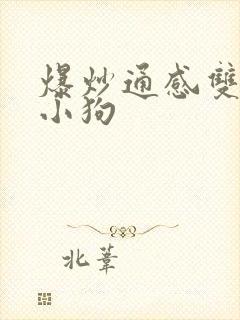 爆炒通感雙
小狗
北葦